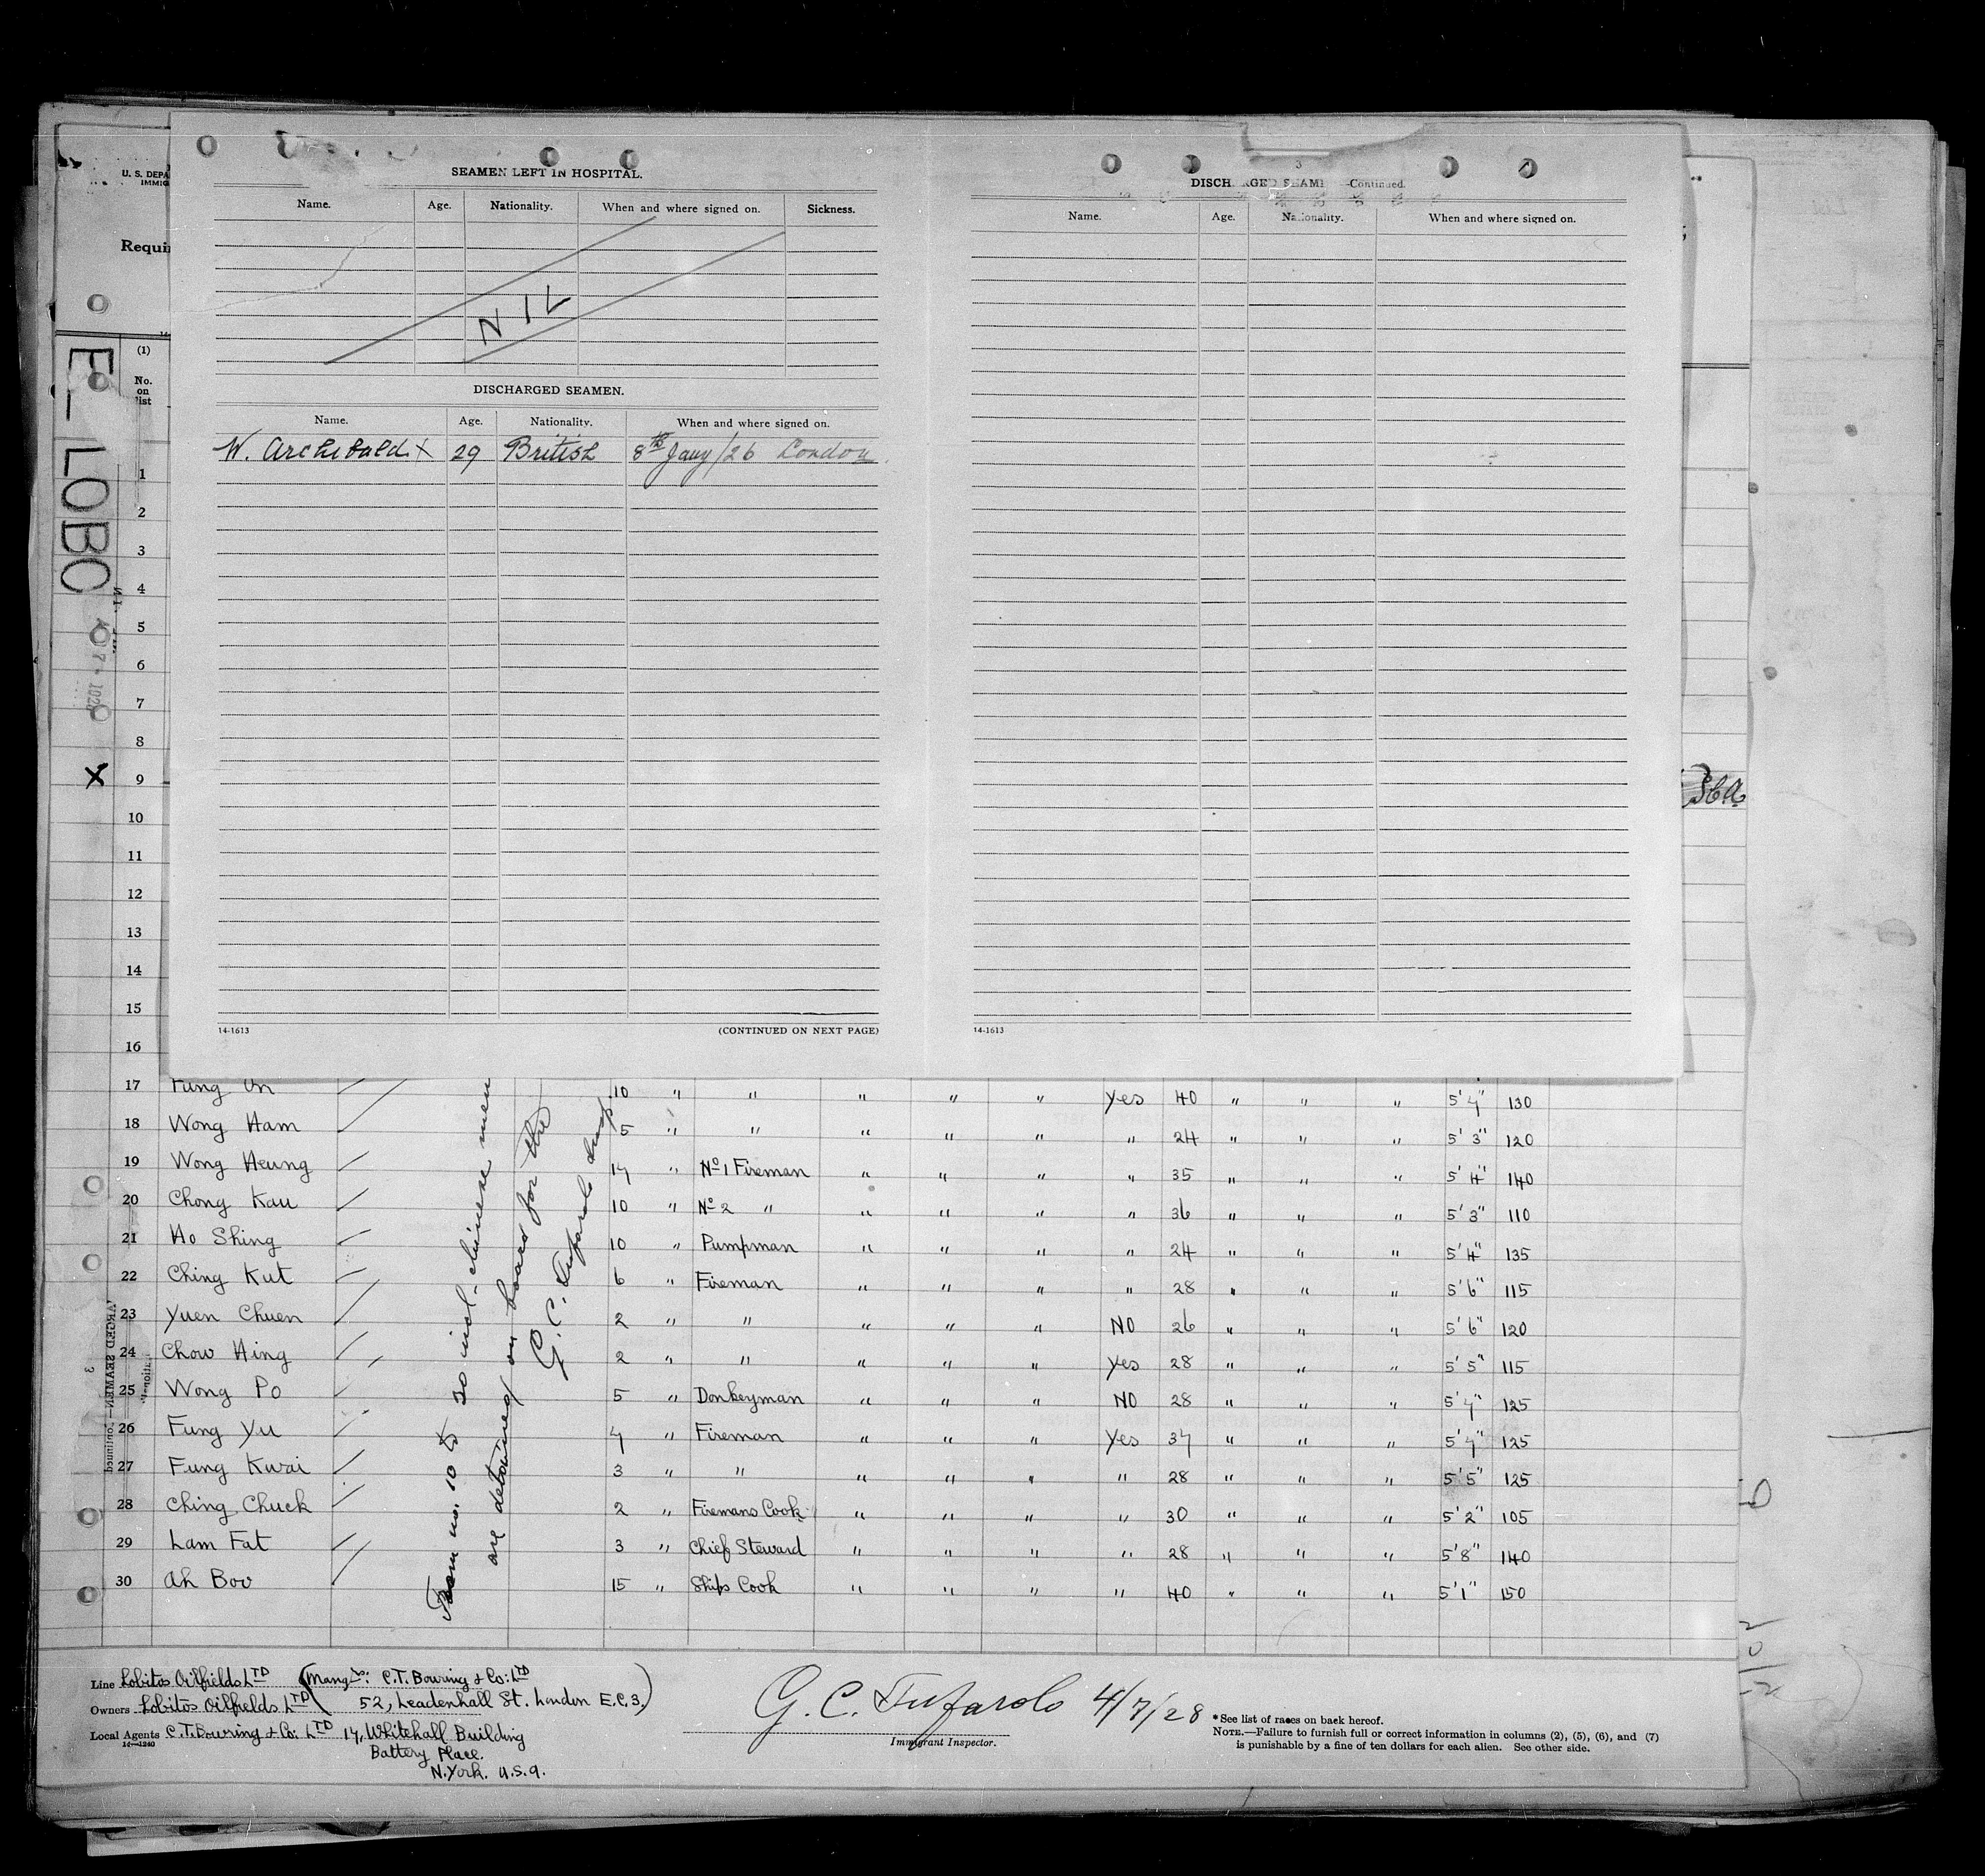 SEAMEN LEFT IN HOSPITAL.
Name. Age. Nationality. When and where signed on. Sickness.
NIL
DISCHARGED SEAMEN.
Name. Age. Nationality. When and where signed on.
W. Archibald X 29 British 8th Jany/26 London
14-1613 (CONTINUED ON NEXT PAGE)
3
DISCHARGED SEAM —Continued.
Name. Age. Nationality. When and where signed on.
14-1613
U. S. DEPA
IMMIG
Requi
EL LOBO
(1)
No. on list
1
2
3
4
5
6
7
8
X 9
10
11
12
13
14
15
16
17 Fung On 10 " " " " " Yes 40 " " " 5' 7" 130
18 Wong Ham 5 " " " " " " 24 " " " 5' 3" 120
19 Wong Heung 17 " No 1 Fireman " " " " 35 " " " 5' 4" 140
20 Chong Kau 10 " No 2 " " " " " 36 " " " 5' 3" 110
21 Ho Shing 10 " Pumpman " " " " 24 " " " 5' 4" 135
22 Ching Kut 6 " Fireman " " " " 28 " " " 5' 6" 115
23 Yuen Chuen 2 " " " " " NO 26 " " " 5' 6" 120
24 Chow Hing 2 " " " " " Yes 28 " " " 5' 5" 115
25 Wong Po 5 " Donkeyman " " " NO 28 " " " 5' 7" 125
26 Fung Yu 7 " Fireman " " " Yes 37 " " " 5' 7" 125
27 Fung Kwai 3 " " " " " " 28 " " " 5' 5" 125
28 Ching Chuck 2 " Firemans Cook " " " " 30 " " " 5' 2" 105
29 Lam Fat 3 " Chief Steward " " " " 28 " " " 5' 8" 140
30 Ah Boo 15 " Ships Cook " " " " 40 " " " 5' 1" 150
From no. 10 to 30 incl. chinese men
are detained on board for the
G. C. Tufarolo Insp.
Line Lobitos Oilfields LTD (Mangrs: C.T. Bowring & Co: LTD
Owners Lobitos Oilfields LTD 52, Leadenhall St. London E.C.3.)
Local Agents C.T. Bowring & Co. LTD 17, Whitehall Building
14—1240
Battery Place.
N.York. U.S.A.
G. C. Tufarolo 4/7/28
Immigrant Inspector.
* See list of races on back hereof.
NOTE.—Failure to furnish full or correct information in columns (2), (5), (6), and (7)
is punishable by a fine of ten dollars for each alien. See other side.